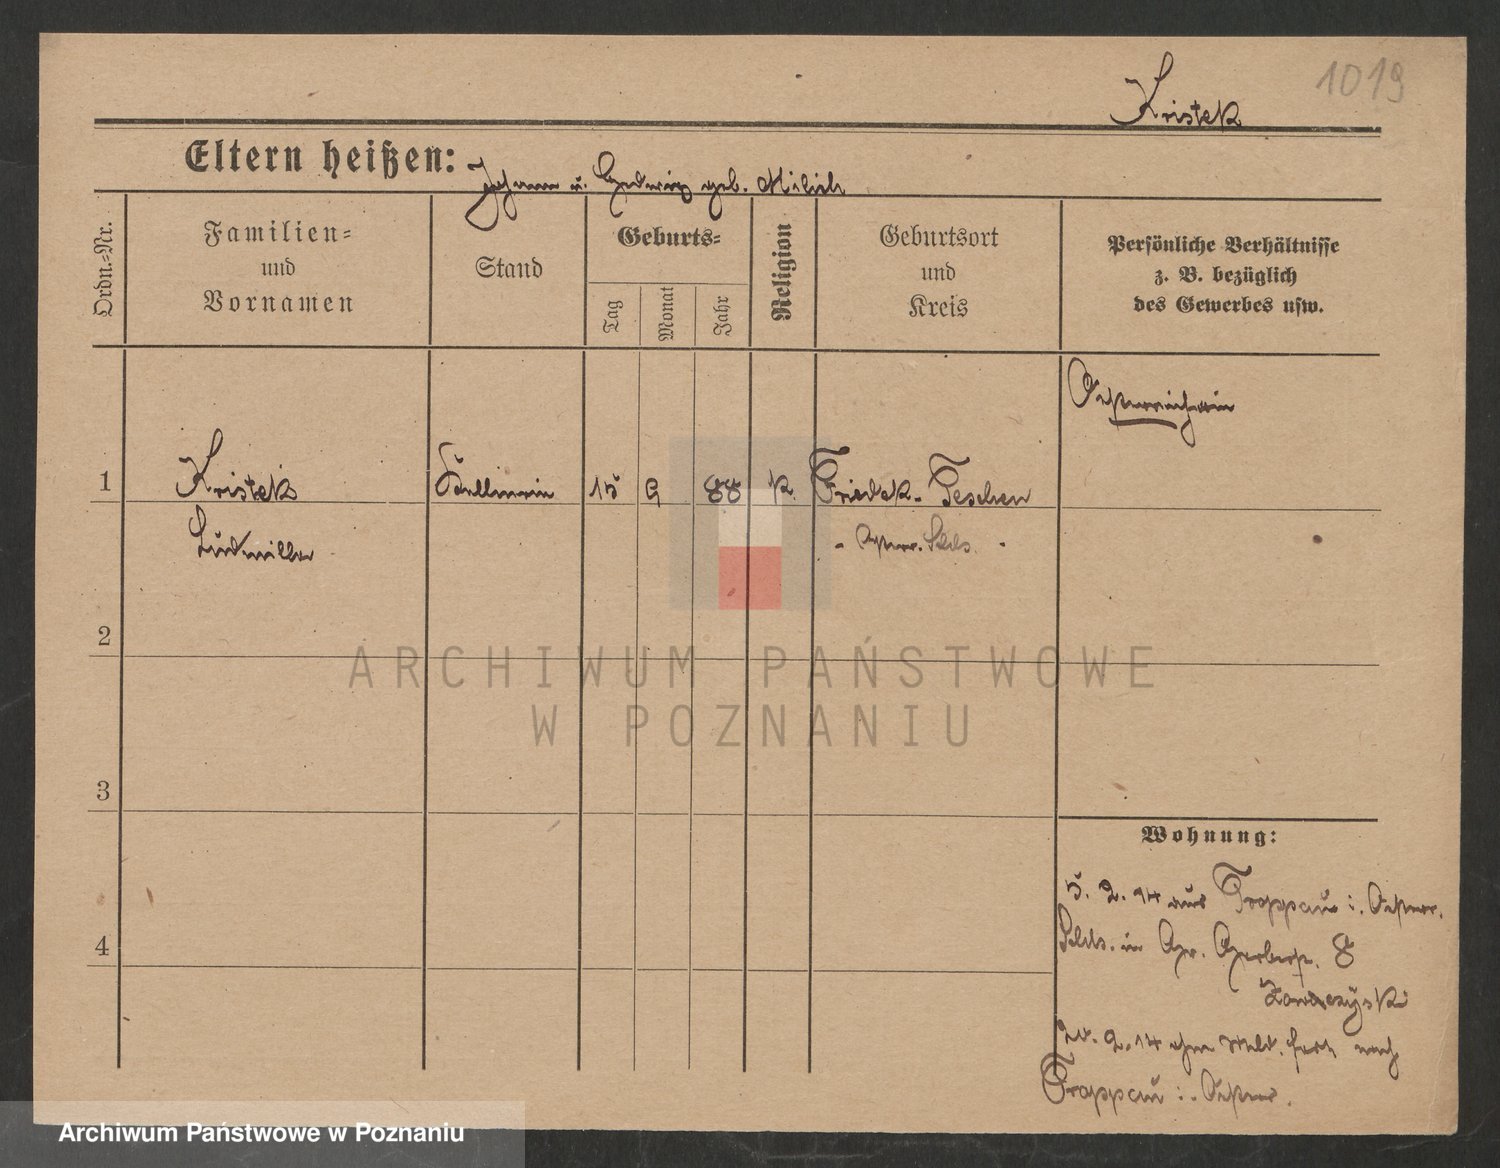 1019
Kristek
Eltern heißen: Johann u. Hedwig geb. Milich
Ordn.-Nr.
Familien-
und
Vornamen
Stand
Geburts-
Tag
Monat
Jahr
Religion
Geburtsort
und
Kreis
Persönliche Verhältnisse
z. B. bezüglich
des Gewerbes usw.
Österreicherin
1 Kristek Kellnerin 15 9 88 K Friedek-Teschen
Ludmilla - Österr. Schles. -
2
ARCHIWUM PAŃSTWOWE
W POZNANIU
3
Wohnung:
5. 2. 14 aus Troppau i. Österr.
Schles. in Gr. Gerberstr. 8
4
20. 2. 14 ohne Meld. fort nach
Troppau i. Österr.
Archiwum Państwowe w Poznaniu